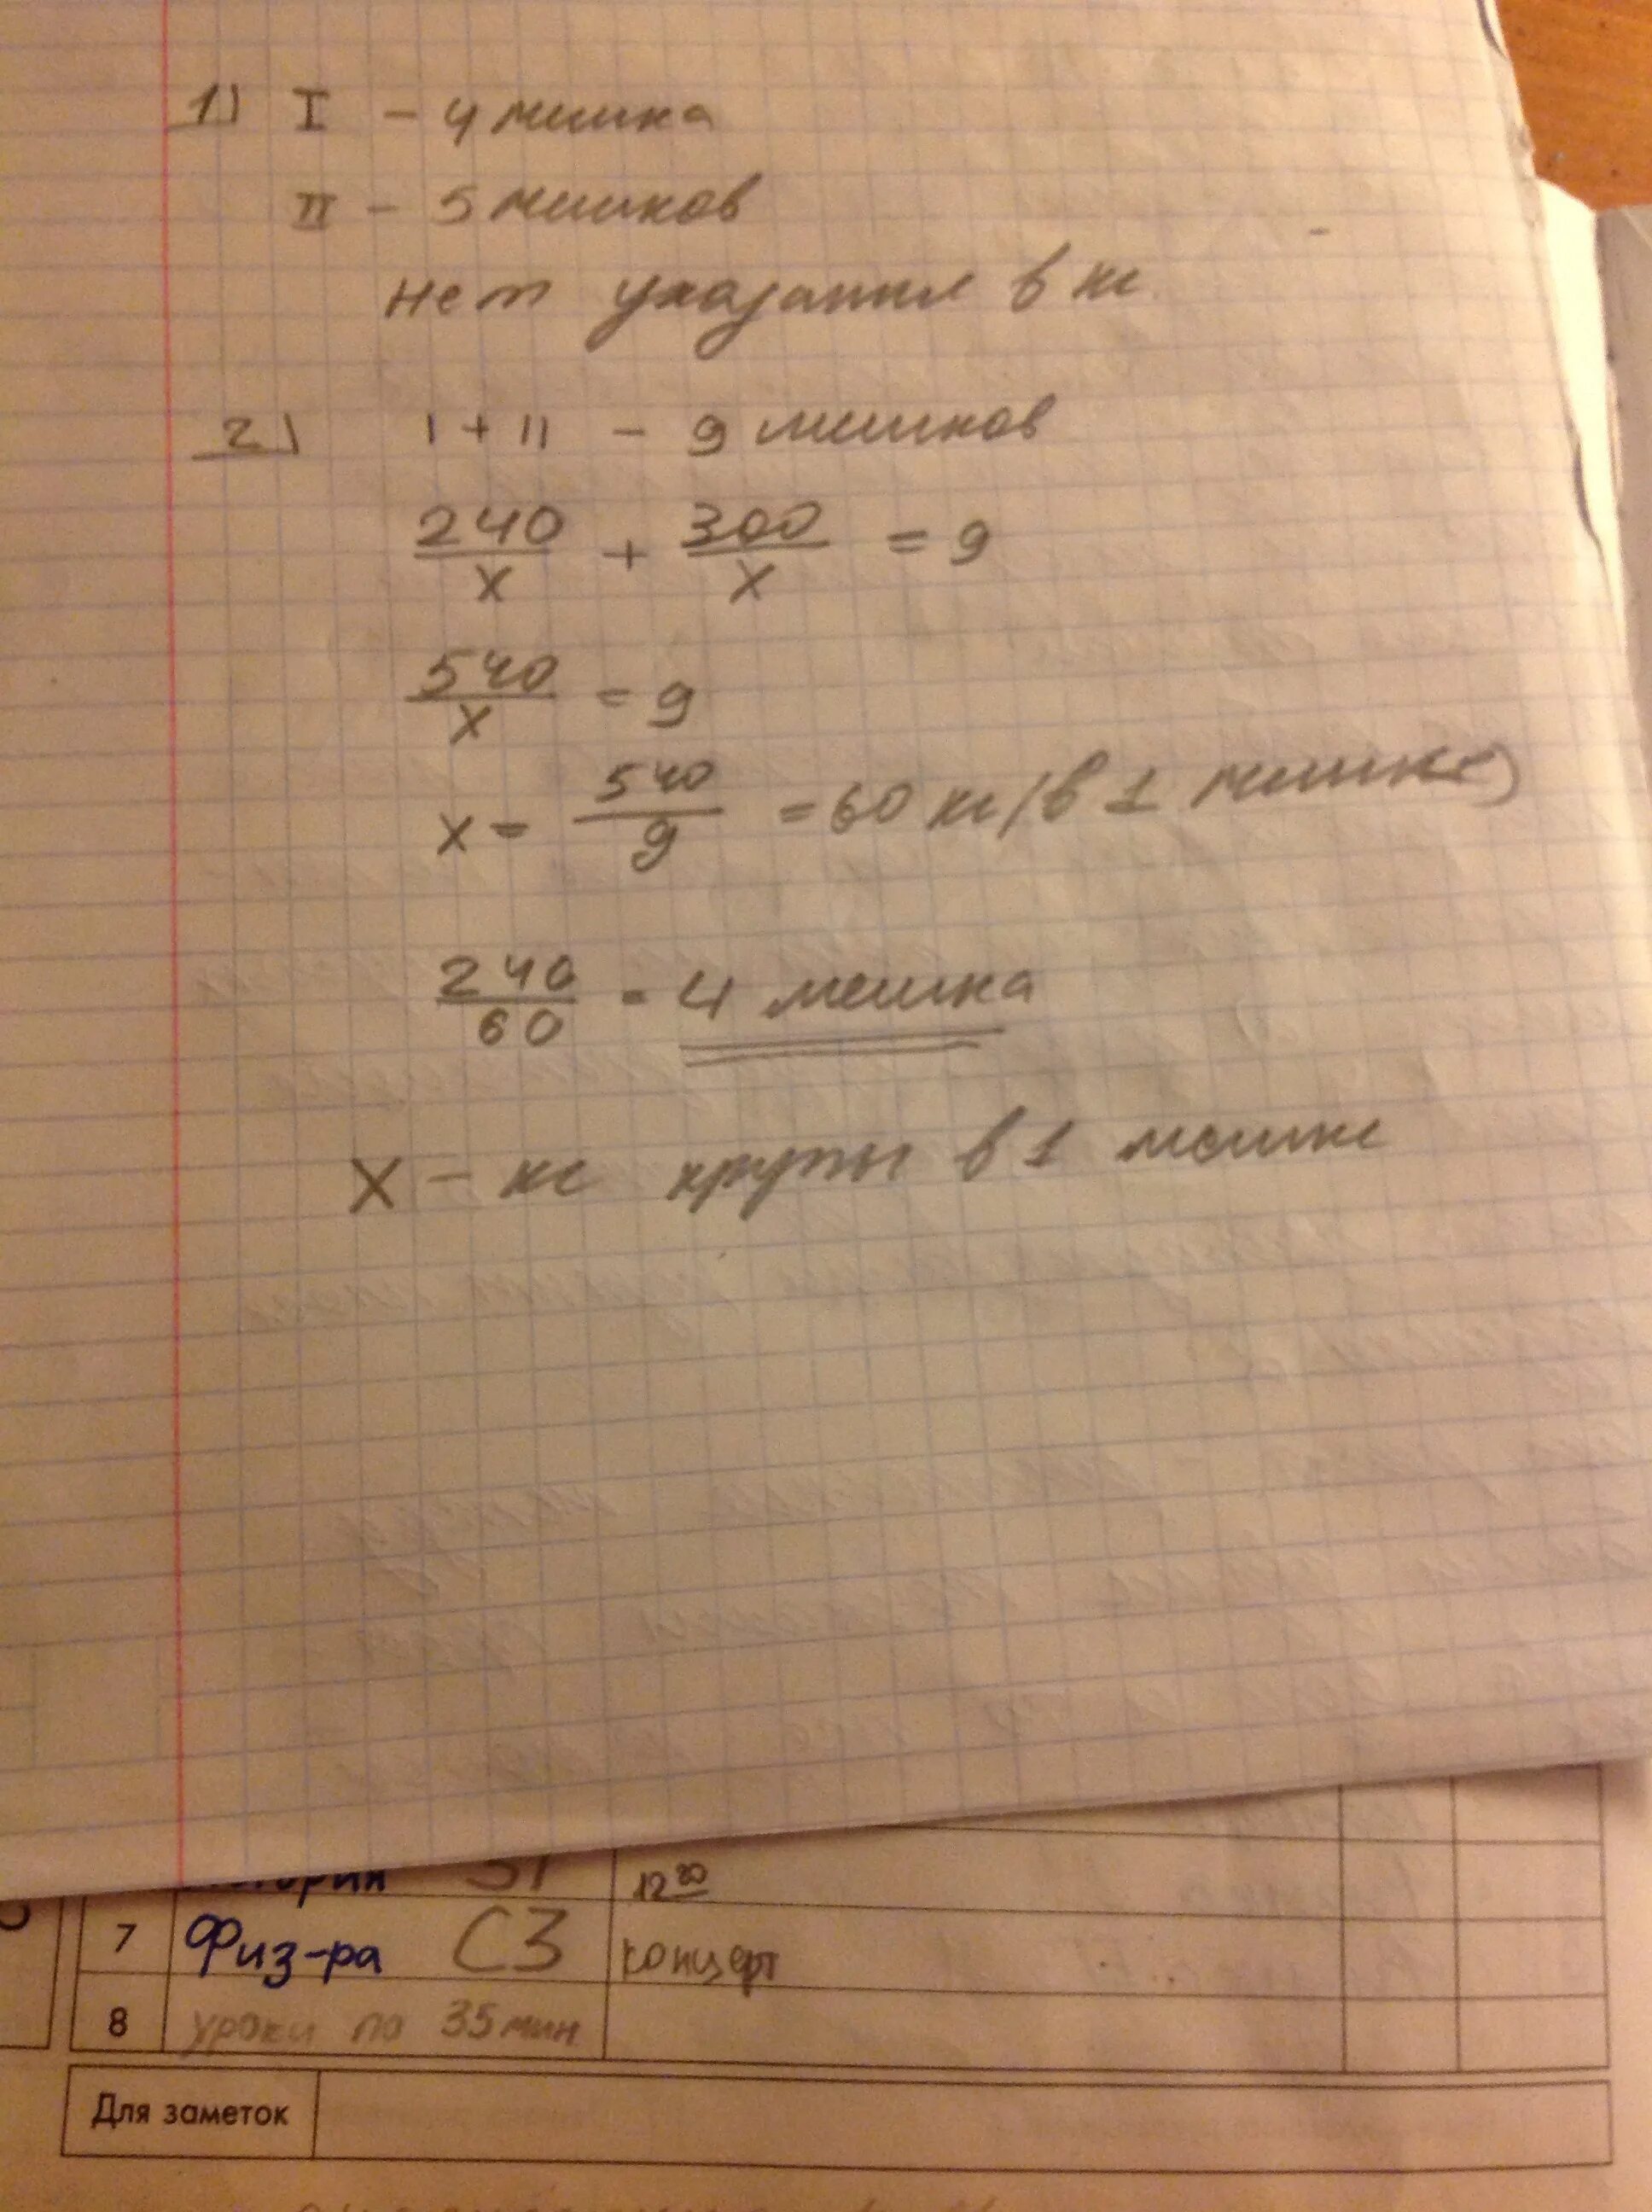 1) I - 4 мешка
II - 5 мешков
нет указания в кг
2) I + II - 9 мешков
240/x + 300/x = 9
540/x = 9
x = 540/9 = 60 кг (в 1 мешке)
240/60 = 4 мешка
x - кг крупы в 1 мешке
12 20
7 Физ-ра С3 концерт
8 уроки по 35 мин
Для заметок